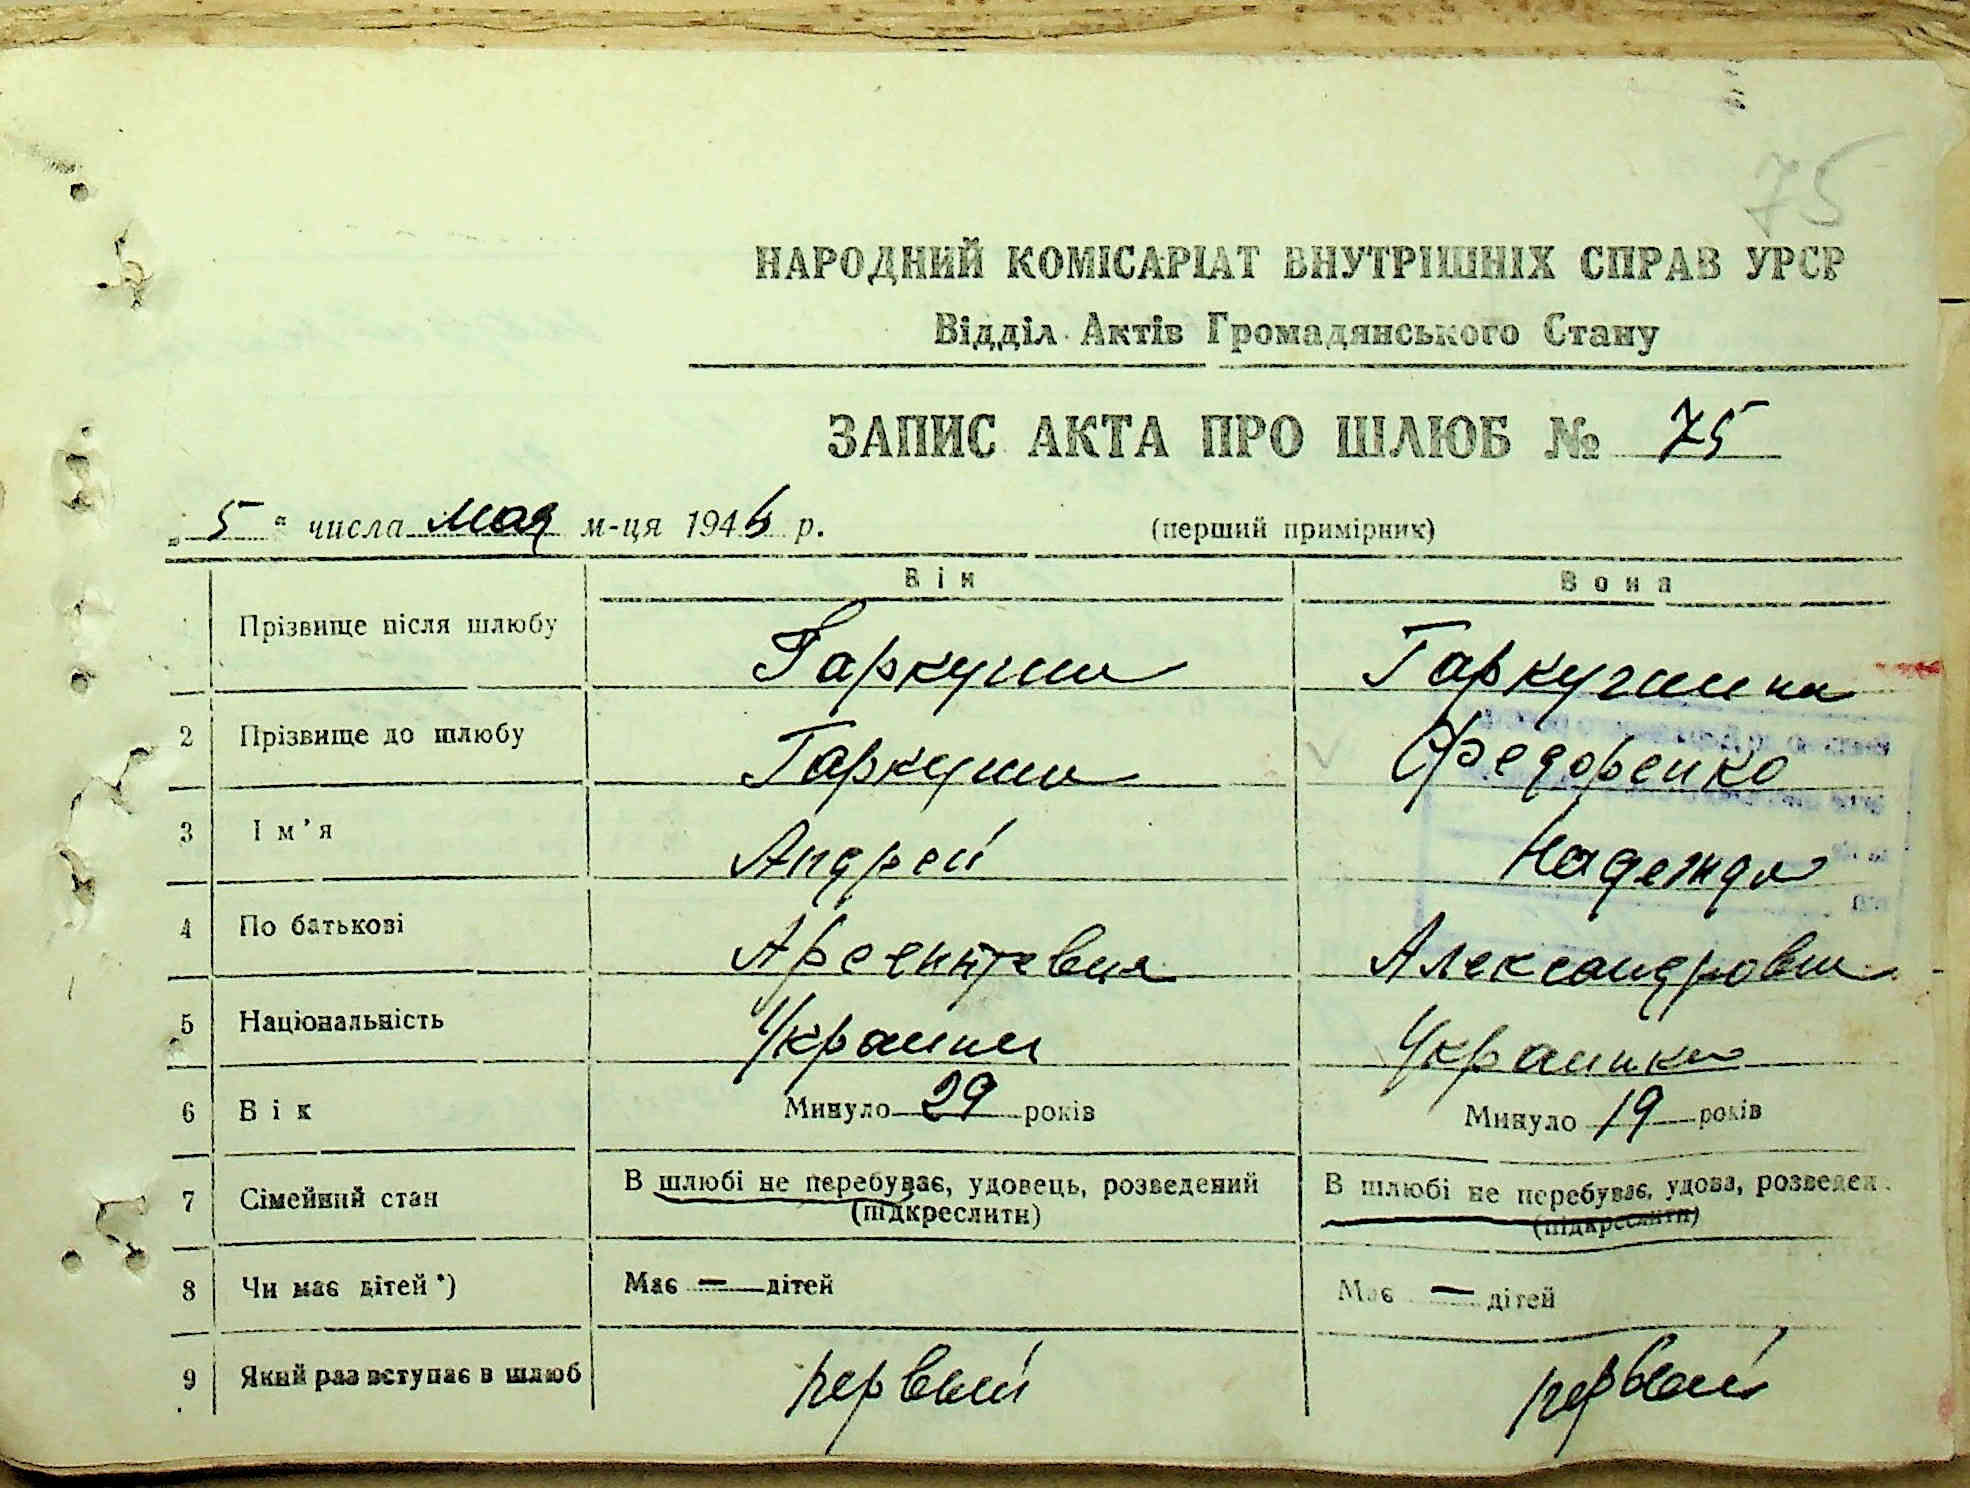 75
НАРОДНИЙ КОМІСАРІАТ ВНУТРІШНІХ СПРАВ УРСР
Відділ Актів Громадянського Стану
ЗАПИС АКТА ПРО ШЛЮБ № 75
„ 5 “ числа мая м-ця 194 р. (перший примірник)
Він Вона
Прізвище після шлюбу Гаркуша
2 Прізвище до шлюбу Гаркуша Федоренко
3 Ім’я Андрей Надежда
4 По батькові Александровна
5 Національність Украинец Украинка
6 Вік Минуло 29 років Минуло 19 років
7 Сімейний стан В шлюбі не перебуває, удовець, розведений В шлюбі не перебуває, удова, розведен
(підкреслити) (підкреслити)
8 Чи має дітей *) Має — дітей Має — дітей
9 Який раз вступає в шлюб первый первый